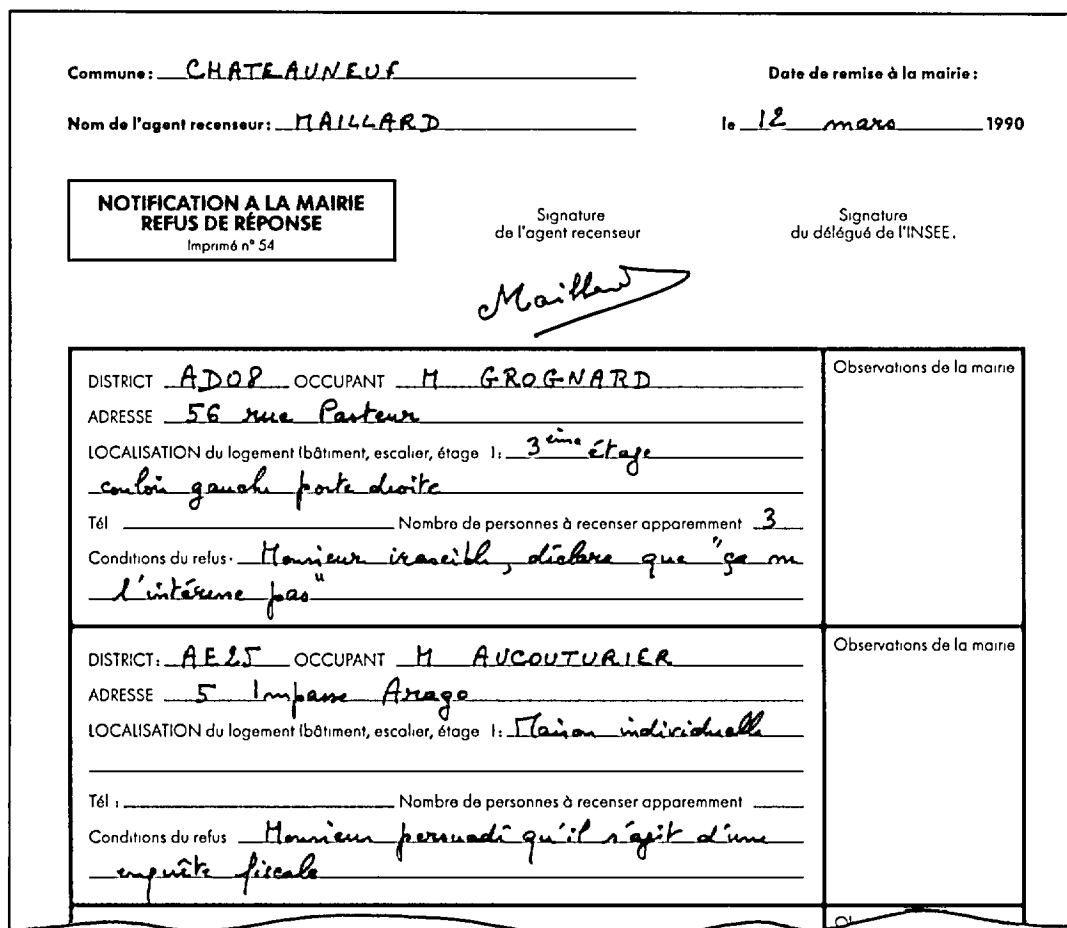 Commune: CHATEAUNEUF Date de remise à la mairie:
Nom de l'agent recenseur: MAILLARD le 12 mars 1990
NOTIFICATION A LA MAIRIE
REFUS DE RÉPONSE
Imprimé n° 54
Signature
de l'agent recenseur
Signature
du délégué de l'INSEE.
Maillard
DISTRICT AD08 OCCUPANT M GROGNARD
ADRESSE 56 rue Pasteur
LOCALISATION du logement (bâtiment, escalier, étage ): 3ème étage
couloir gauche porte droite
Tél Nombre de personnes à recenser apparemment 3
Conditions du refus: Monsieur irascible, déclare que "ça ne
l'intéresse pas"
Observations de la mairie
DISTRICT: AE25 OCCUPANT M AUCOUTURIER
ADRESSE 5 Impasse Arago
LOCALISATION du logement (bâtiment, escalier, étage ): Maison individuelle
Tél : Nombre de personnes à recenser apparemment
Conditions du refus Monsieur persuadé qu'il s'agit d'une
enquête fiscale
Observations de la mairie